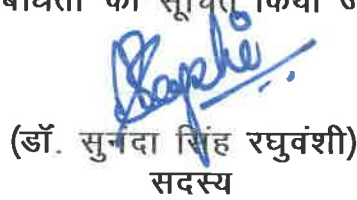 को सूचित किया
(डॉ. सुनंदा सिंह रघुवंशी)
सदस्य